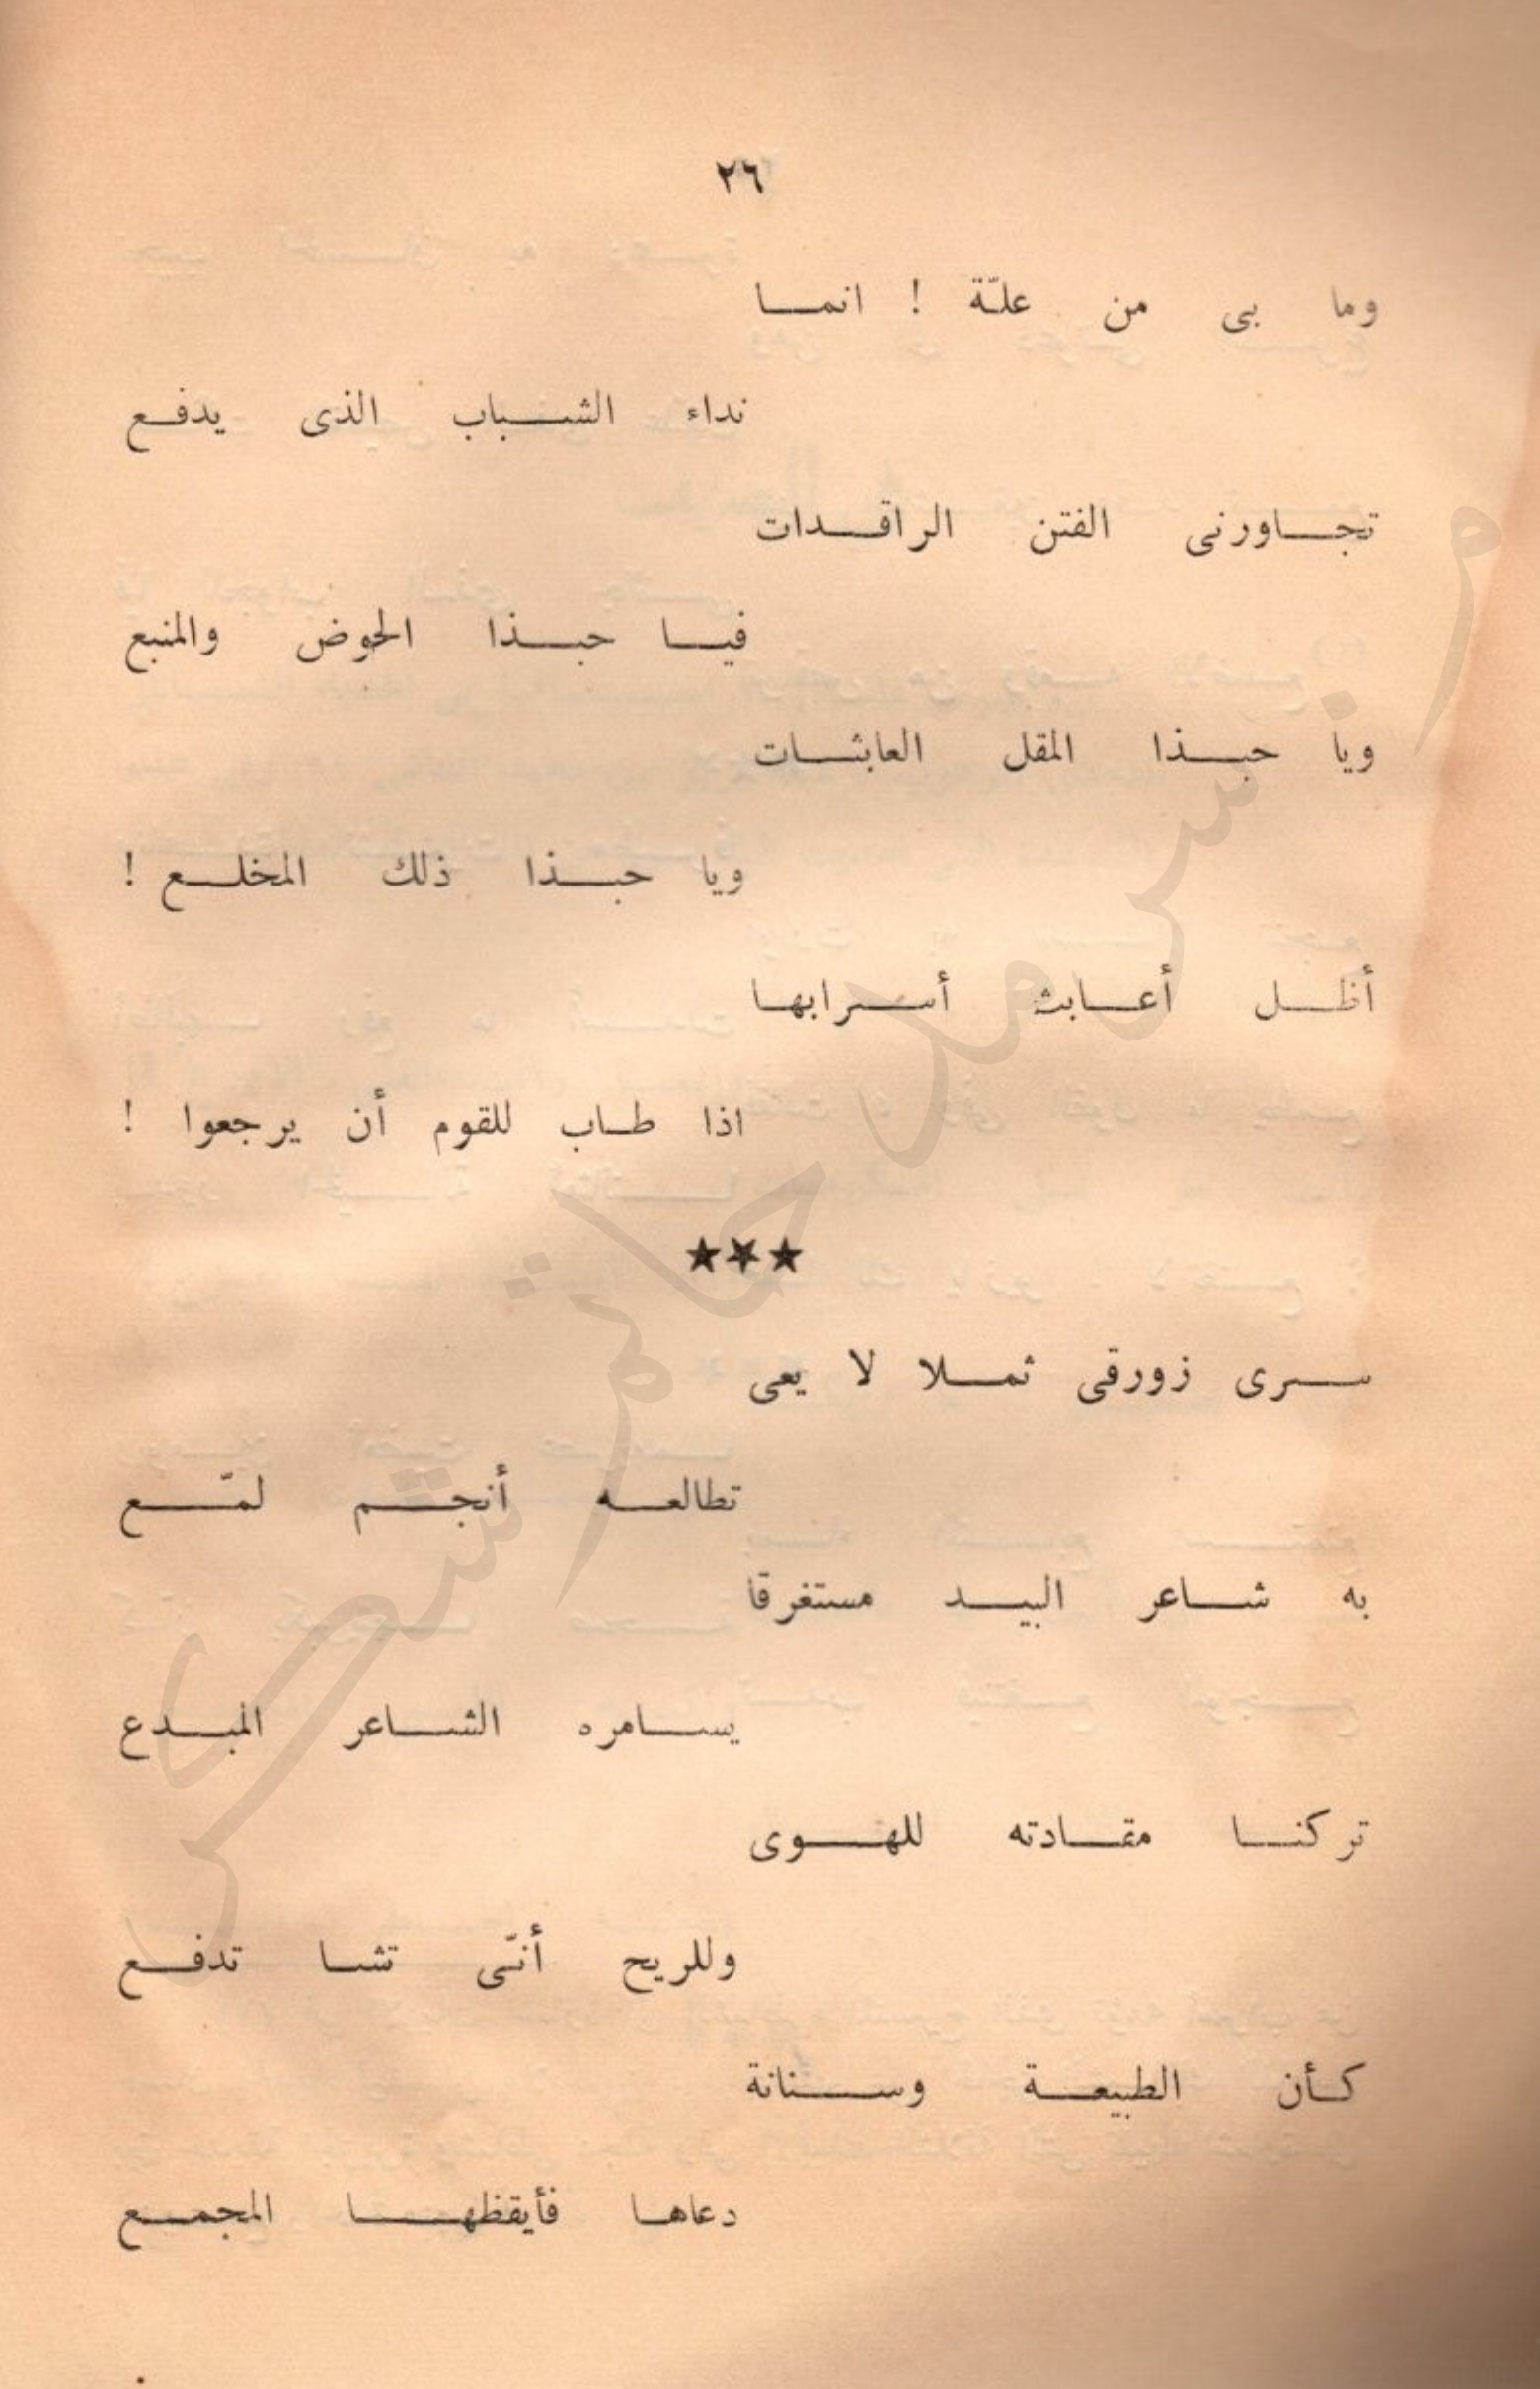 ٢٦
وما بى من علّة ! انما
نداء الشباب الذى يدفع
تجاورنى الفتن الراقدات
فيا حبذا الحوض والمنبع
ويا حبذا المقل العابثات
ويا حبذا ذلك المخلع !
أظل أعابث أسرابها
اذا طاب للقوم أن يرجعوا !
★★★
سرى زورقى ثملا لا يعى
تطالعه أنجم لمّع
به شاعر البيد مستغرقا
يسامره الشاعر المبدع
تركنا مقادته للهوى
وللريح أنّى تشا تدفع
كأن الطبيعة وسنانة
دعاها فأيقظها المجمع